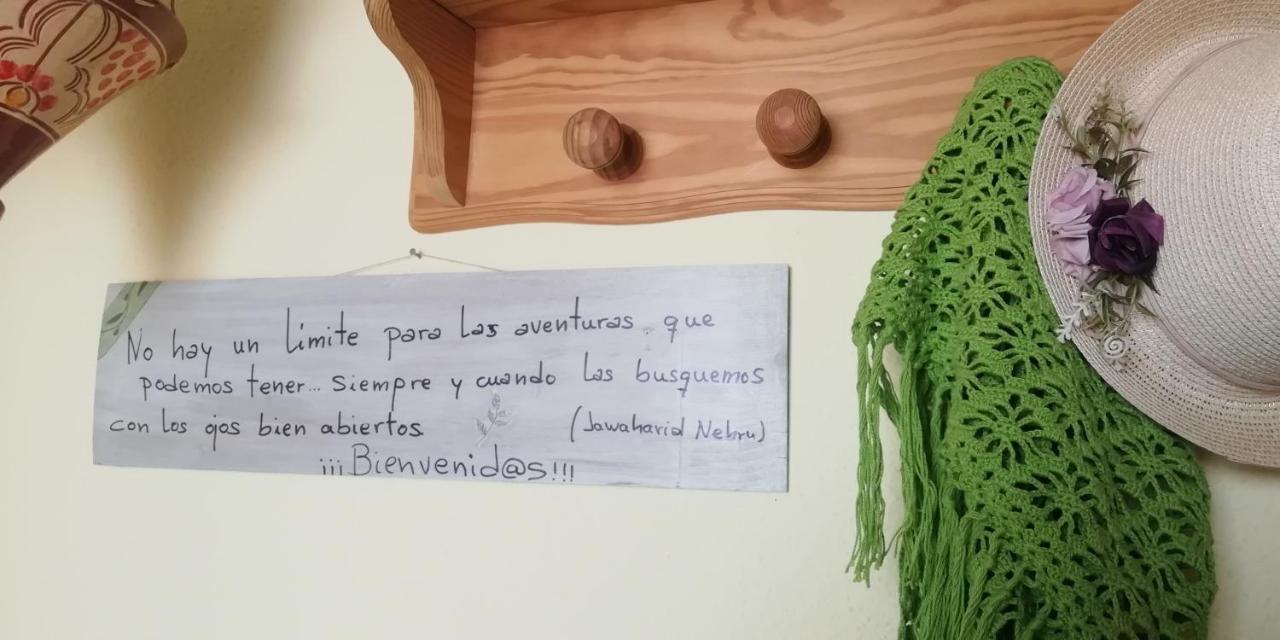 No hay un límite para las aventuras que
podemos tener... siempre y cuando las busquemos
con los ojos bien abiertos (Jawaharid Nehru)
¡¡¡Bienvenid@s!!!